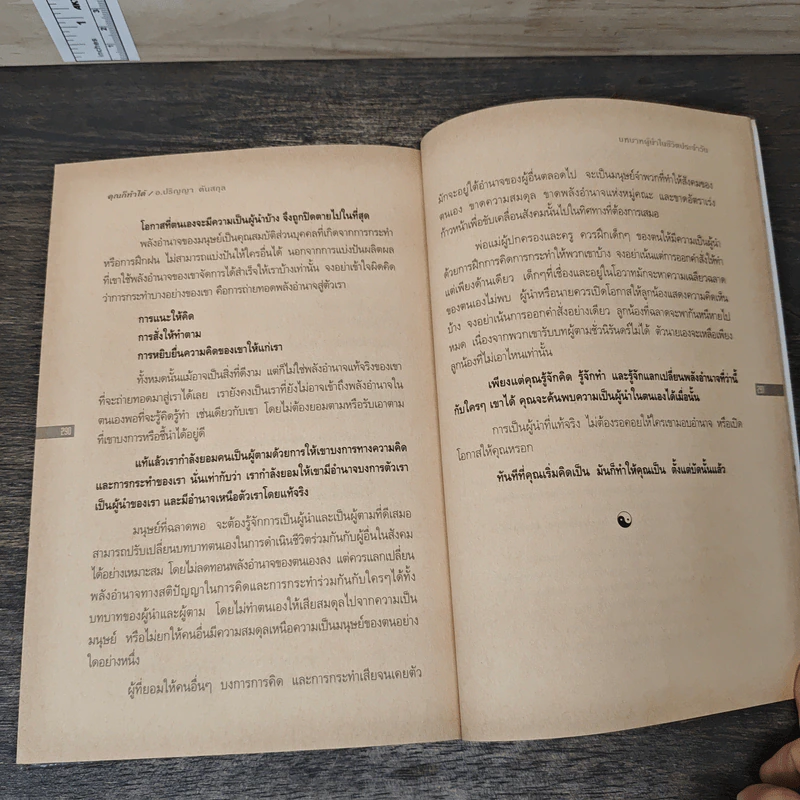 คุณก็ทำได้ / อ.ปริญญา ตันสกุล
โอกาสที่ตนเองจะมีความเป็นผู้นำบ้าง จึงถูกปิดตายไปในที่สุด
พลังอำนาจของมนุษย์เป็นคุณสมบัติส่วนบุคคลที่เกิดจากการกระทำ
หรือการฝึกฝน ไม่สามารถแบ่งปันให้ใครอื่นได้ นอกจากการแบ่งปันผลผลิต
ที่เขาใช้พลังอำนาจของเขาจัดการได้สำเร็จให้เราบ้างเท่านั้น จงอย่าเข้าใจผิดคิด
ว่าการกระทำบางอย่างของเขา คือการถ่ายทอดพลังอำนาจสู่ตัวเรา
การแนะให้คิด
การสั่งให้ทำตาม
การหยิบยื่นความคิดของเขาให้แก่เรา
ทั้งหมดนั้นแม้อาจเป็นสิ่งที่ดีงาม แต่ก็ไม่ใช่พลังอำนาจแท้จริงของเขา
ที่จะถ่ายทอดมาสู่เราได้เลย เรายังคงเป็นเราที่ยังไม่อาจเข้าถึงพลังอำนาจใน
ตนเองพอที่จะรู้คิดรู้ทำ เช่นเดียวกับเขา โดยไม่ต้องยอมตามหรือรับเอาตาม
ที่เขาบงการหรือชี้นำได้อยู่ดี
แท้แล้วเรากำลังยอมตนเป็นผู้ตามด้วยการให้เขาบงการทางความคิด
และการกระทำของเรา นั่นเท่ากับว่า เรากำลังยอมให้เขามีอำนาจบงการตัวเรา
เป็นผู้นำของเรา และมีอำนาจเหนือตัวเราโดยแท้จริง
มนุษย์ที่ฉลาดพอ จะต้องรู้จักการเป็นผู้นำและเป็นผู้ตามที่ดีเสมอ
สามารถปรับเปลี่ยนบทบาทตนเองในการดำเนินชีวิตร่วมกันกับผู้อื่นในสังคม
ได้อย่างเหมาะสม โดยไม่ลดทอนพลังอำนาจของตนเองลง แต่ควรแลกเปลี่ยน
พลังอำนาจทางสติปัญญาในการคิดและการกระทำร่วมกันกับใครๆได้ทั้ง
บทบาทของผู้นำและผู้ตาม โดยไม่ทำตนเองให้เสียสมดุลไปจากความเป็น
มนุษย์ หรือไม่ยกให้คนอื่นมีความสมดุลเหนือความเป็นมนุษย์ของตนอย่าง
ใดอย่างหนึ่ง
ผู้ที่ยอมให้คนอื่นๆ บงการการคิด และการกระทำเสียจนเคยตัว
290
บทบาทผู้นำในชีวิตประจำวัน
มักจะอยู่ใต้อำนาจของผู้อื่นตลอดไป จะเป็นมนุษย์จำพวกที่ทำให้สังคมของ
ตนเอง ขาดความสมดุล ขาดพลังอำนาจแห่งหมู่คณะ และขาดอัตราเร่ง
ก้าวหน้าเพื่อขับเคลื่อนสังคมนั้นไปในทิศทางที่ต้องการเสมอ
พ่อแม่ผู้ปกครองและครู ควรฝึกเด็กๆ ของตนให้มีความเป็นผู้นำ
ด้วยการฝึกการคิดการกระทำให้พวกเขาบ้าง จงอย่าเน้นแต่การออกคำสั่งให้ทำ
แต่เพียงด้านเดียว เด็กๆที่เชื่องและอยู่ในโอวาทมักจะหาความเฉลียวฉลาด
ของตนเองไม่พบ ผู้นำหรือนายควรเปิดโอกาสให้ลูกน้องแสดงความคิดเห็น
บ้าง จงอย่าเน้นการออกคำสั่งอย่างเดียว ลูกน้องที่ฉลาดจะพากันหนีหายไป
หมด เนื่องจากพวกเขารับบทผู้ตามชั่วนิรันดร์ไม่ได้ ตัวนายเองจะเหลือเพียง
ลูกน้องที่ไม่เอาไหนเท่านั้น
เพียงแต่คุณรู้จักคิด รู้จักทำ และรู้จักแลกเปลี่ยนพลังอำนาจที่ว่านี้
กับใครๆ เขาได้ คุณจะค้นพบความเป็นผู้นำในตนเองได้เมื่อนั้น
การเป็นผู้นำที่แท้จริง ไม่ต้องรอคอยให้ใครเขามอบอำนาจ หรือเปิด
โอกาสให้คุณหรอก
ทันทีที่คุณเริ่มคิดเป็น มันก็ทำให้คุณเป็น ตั้งแต่บัดนั้นแล้ว